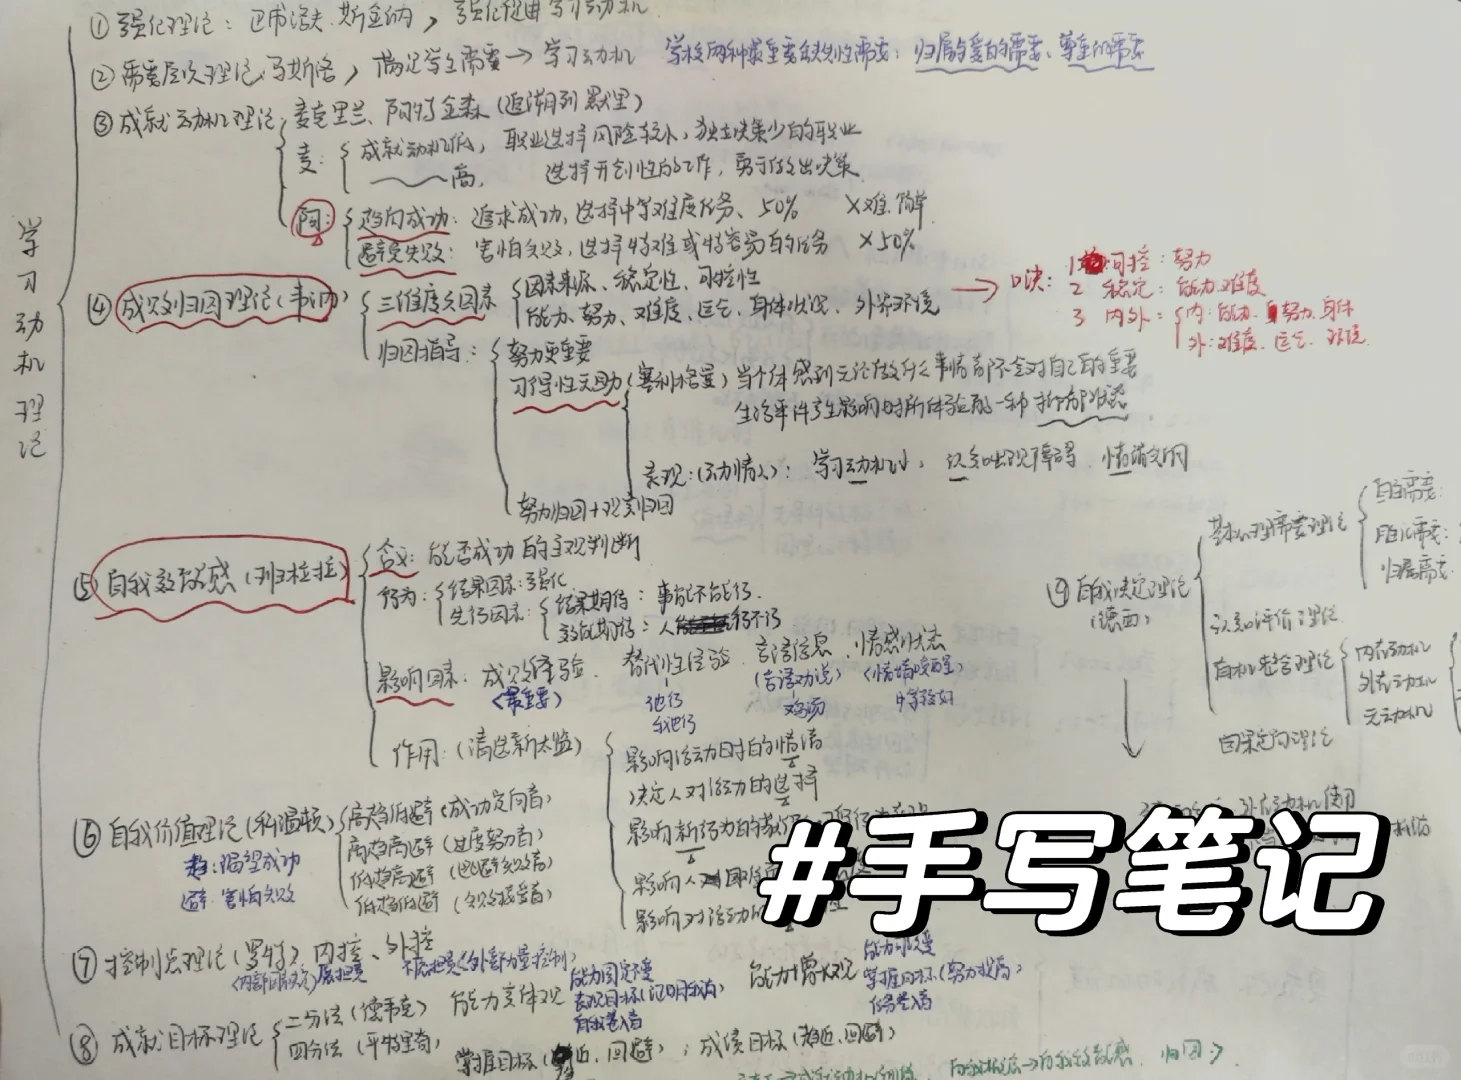 学习动机理论
① 强化理论：巴甫洛夫.斯金纳，强化促进学习动机.
② 需要层次理论.马斯洛，满足学生需要→学习动机 学校两种最重要缺失性需要：归属与爱的需要、尊重的需要
③ 成就动机理论，麦克里兰、阿特金森（追溯到默里）
麦：成就动机低，职业选择风险较小，独立决策少的职业
高，选择开创性的工作，勇于做出决策.
阿：趋向成功：追求成功，选择中等难度任务、50% ×难.简单
避免失败：害怕失败，选择特难或特容易的任务 ×50%
④ 成败归因理论（韦纳）三维度六因素 因素来源、稳定性、可控性
能力、努力、难度、运气、身体状况、外界环境
→口诀：1 可控：努力
2 稳定：能力.难度
3 内外：内：能力.努力.身体
外：难度、运气、环境
归因指导：努力更重要
习得性无助（塞利格曼）当个体感到无论做什么事情都不会对自己的重要
生活事件产生影响时所体验的一种抑郁状态
表现：（动情人）：学习动机小，认知出现障碍、情绪失调
努力归因+现实归因
⑤ 自我效能感（班杜拉）含义：能否成功的主观判断
行为：结果因素：强化
先行因素：结果期待：事能不能行.
效能期待：人行不行
影响因素：成败经验. 替代性经验. 言语信息，情感状态
（最重要） 他行 （言语劝说） （情绪唤醒）
我也行 鸡汤 中等较好
作用：（情选新太监）
影响活动时的情绪
决定人对活动的选择
影响新行为的
影响人对困难
影响对活动的
⑥ 自我价值理论（科温顿）高趋低避（成功定向者）
趋：渴望成功 高趋高避（过度努力者）
避：害怕失败 低趋高避（逃避失败者）
低趋低避（失败接受者）
⑦ 控制点理论（罗特）内控、外控
⑧ 成就目标理论 二分法（德韦克） 能力实体观 能力固定不变
表现目标（证明我有）
自我卷入者
能力增长观 能力可改变
掌握目标（努力提高）
任务卷入者
四分法（平特里奇）掌握目标（趋近、回避）；成绩目标（趋近、回避）
⑨ 自我决定理论（德西）
基本心理需要理论 自主需要：
胜任需要：
归属需要：
认知评价理论
有机整合理论 内在动机
外在动机
无动机
因果定向理论
#手写笔记